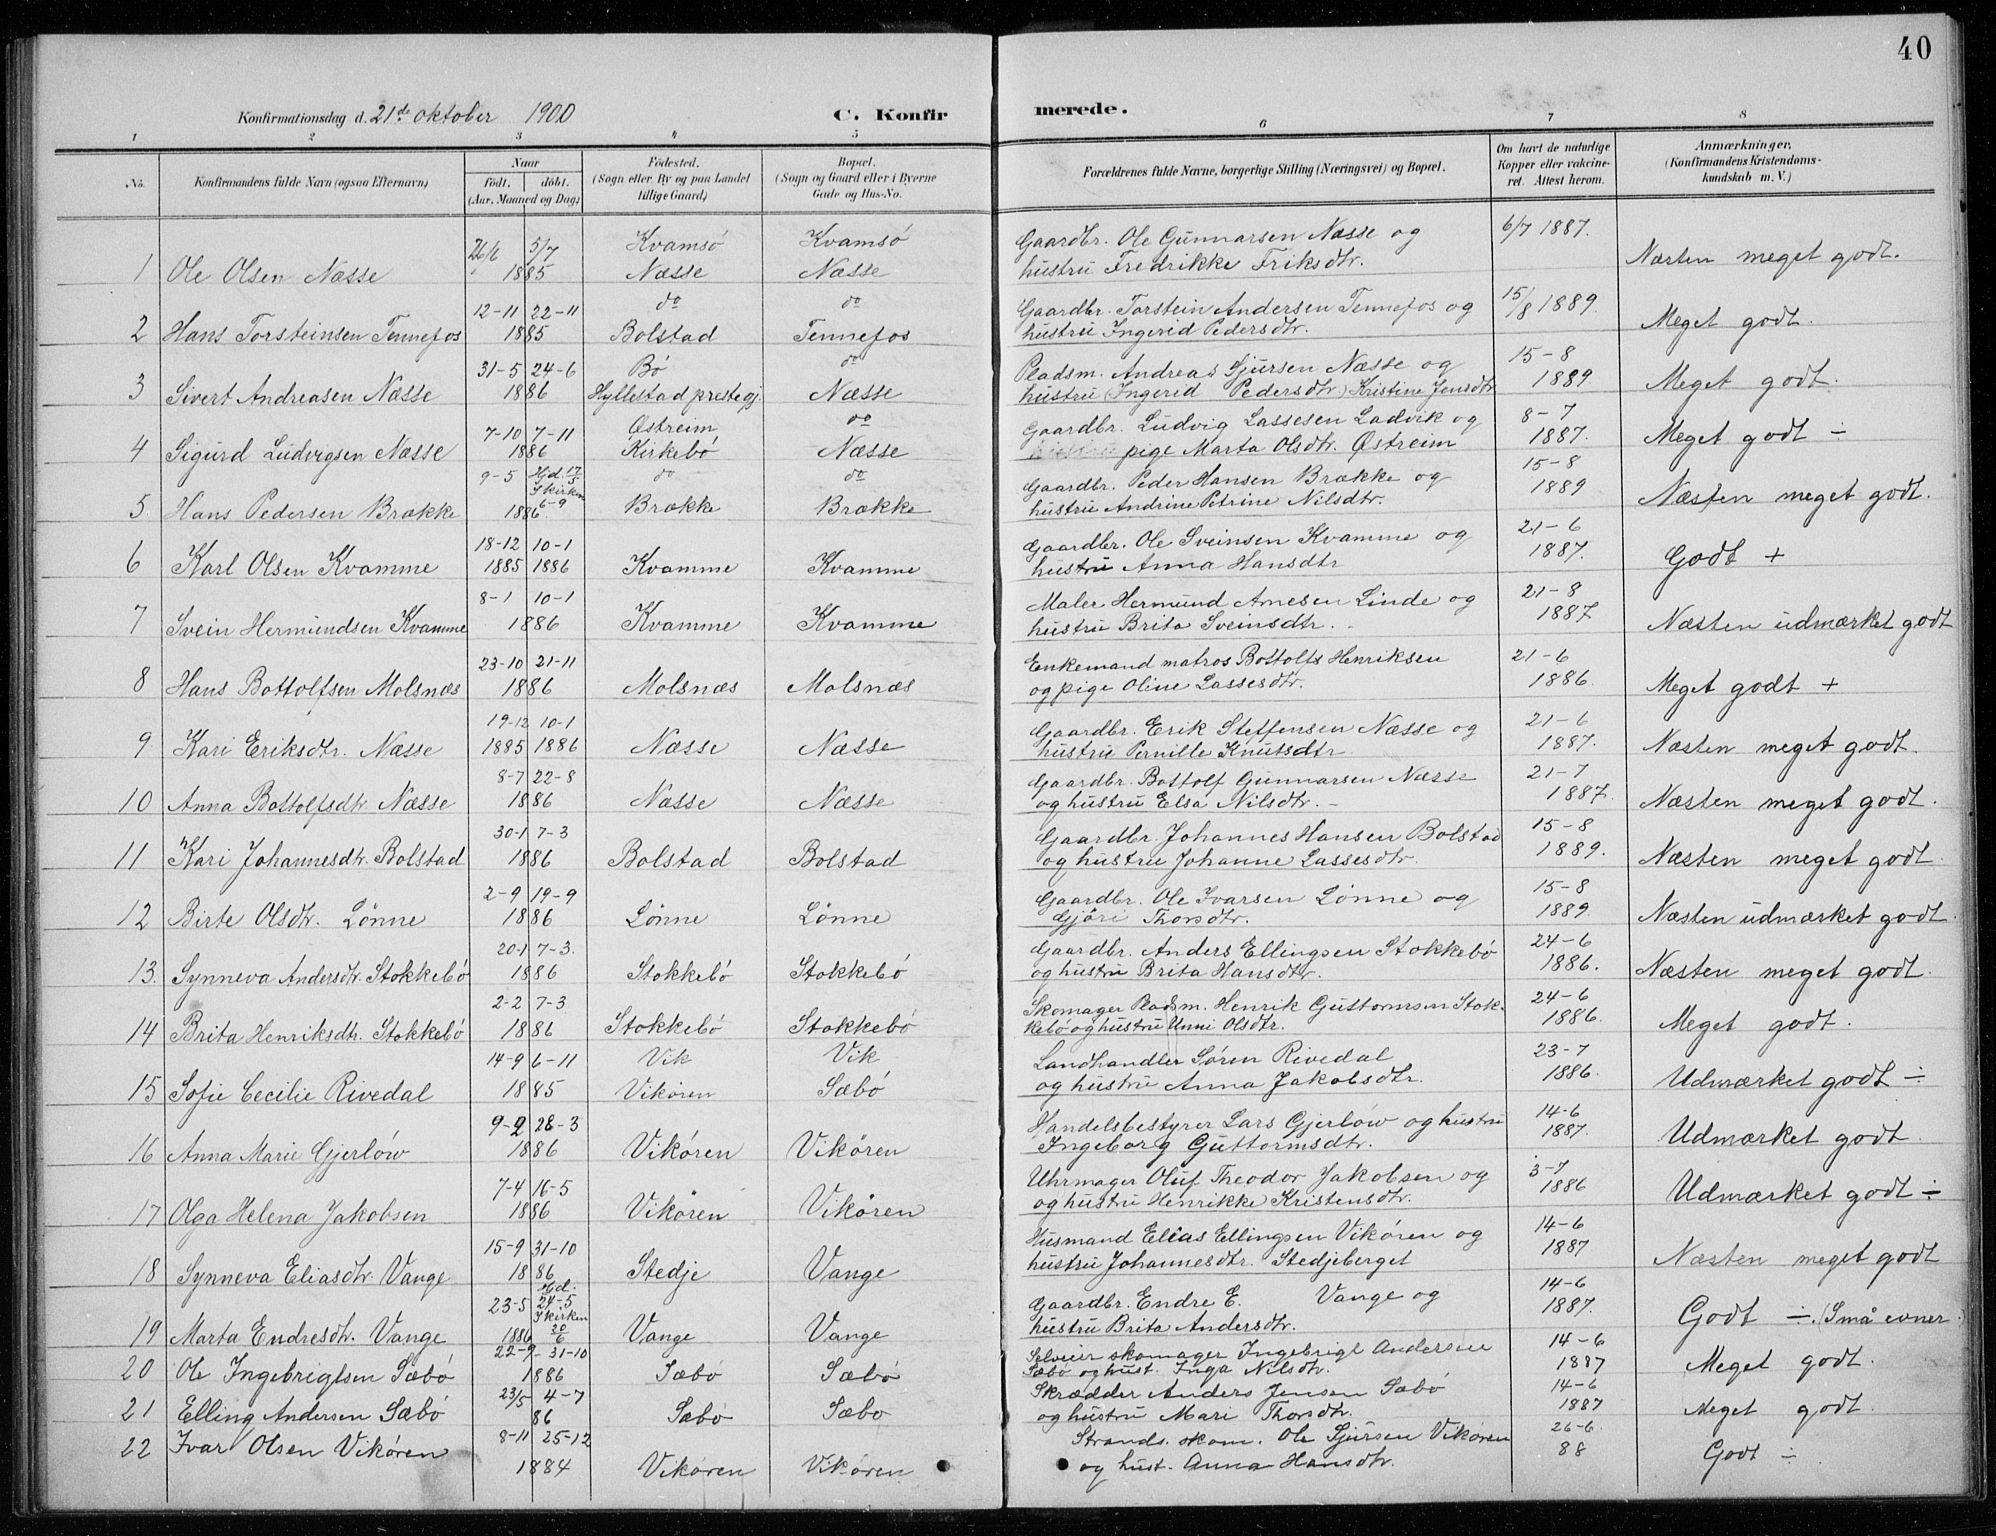 40
Konfirmationsdag d. 21de oktober 1900 C. Konfirmerede.
1 2 3 4 5 6 7 8
No. Konfirmandens fulde Navn (ogsaa Efternavn) Naar födt. döbt. (Aar, Maaned og Dag) Födested. (Sogn eller By og paa Landet tillige Gaard) Bopæl. (Sogn og Gaard eller i Byerne Gade og Hus-No. Forældrenes fulde Navne, borgerlige Stilling (Næringsvei) og Bopæl. Om havt de naturlige Kopper eller vakcineret. Attest herom. Anmærkninger. (Konfirmandens Kristendomskundskab m. V.)
26/6 5/7 Kvamsö Kvamsö Gaardbr. Ole Gunnarsen Næsse og 6/7 1887.
1 Ole Olsen Næsse 1885 Næsse Næsse hustru Fredrikke Friksdtr. Næsten meget godt.
12-11 22-11 do do Gaardbr. Torstein Andersen Tennefos og 15/8 1889.
2 Hans Torsteinsen Tennefos 1885 Bolstad Tennefos hustru Ingerid Pedersdtr. Meget godt.
31-5 24-6 Bö do Pladsm. Andreas Sjursen Næsse og 15-8
3 Sivert Andreasen Næsse 1886 Hyllestad prestegj. Næsse hustru (Ingerid Pedersdtr.) Kristine Jensdtr 1889 Meget godt.
7-10 7-11 Østreim do Gaardbr. Ludvig Lassesen Ladvik og 8-7
4 Sigurd Ludvigsen Næsse 1886 Kirkebö Næsse pige Marta Olsdtr. Østreim 1887. Meget godt ÷
9-5 Hjd. 17/5 I kirken 6-9 do do Gaardbr. Peder Hansen Brække og 15-8
5. Hans Pedersen Brække 1886 Brække Brække hustru Andrine Petrine Nilsdtr. 1889 Næsten meget godt.
18-12 10-1 Gaardbr. Ole Sveinsen Kvamme og 21-6
6 Karl Olsen Kvamme 1885 1886 Kvamme Kvamme hustru Anna Hansdtr 1887. Godt +
8-1 10-1 Maler Hermund Arnesen Linde og 21-8
7 Svein Hermundsen Kvamme 1886 Kvamme Kvamme hustru Brita Sveinsdtr. 1887 Næsten udmærket godt
23-10 21-11 Enkemand matros Bottolfs Henriksen 21-6
8 Hans Bottolfsen Molsnæs 1886 Molsnæs Molsnæs og pige Oline Lassesdtr. 1886. Meget godt +
19-12 10-1 Gaardbr. Erik Steffensen Næsse og 21-6
9 Kari Eriksdtr. Næsse 1885 1886 Næsse Næsse hustru Pernille Knutsdtr 1887. Næsten meget godt.
8-7 22-8 Gaardbr. Bottolf Gunnarsen Næsse 21-7
10 Anna Bottolfsdtr Næsse 1886 Næsse Næsse og hustru Elsa Nilsdtr. - 1887. Næsten meget godt.
30-1 7-3 Gaardbr. Johannes Hansen Bolstad 15-8
11 Kari Johannesdtr. Bolstad 1886 Bolstad Bolstad og hustru Johanne Lassesdtr. 1889. Næsten meget godt
2-9 19-9 Gaardbr. Ole Ivarsen Lønne og 15-8
12 Birte Olsdtr. Lönne 1886 Lönne Lönne Gjöri Thorsdtr. 1889. Næsten udmærket godt.
20-1 7-3. Gaardbr. Anders Ellingsen Stokkebö 24-6
13. Synneva Andersdtr. Stokkebö 1886 Stokkebö Stokkebö og hustru Brita Hansdtr. 1886. Næsten meget godt.
2-2 7-3 Skomager Pladsm. Henrik Guttormsen Stok- 24-6
14 Brita Henriksdtr. Stokkebö 1886 Stokkebö Stokkebö kebö og hustru Unni Olsdtr. 1886. Meget godt.
14-9 6-11 Vik Vik Landhandler Søren Rivedal 23-7
15 Sofie Cecilie Rivedal 1885 Vikören Sæbö og hustru Anna Jakobsdtr. 1886. Udmærket godt ÷
9-2 28-3 Handelsbestyrer Lars Gjerløw og hustru 14-6
16 Anna Marie Gjerlöw 1886 Vikören Vikören Ingeborg Guttormsdtr. 1887. Udmærket godt.
7-4 16-5 Uhrmager Oluf Theodor Jakobsen og 3-7
17 Olga Helena Jakobsen 1886 Vikören Vikören og hustru Henrikke Kristensdtr. 1886 Udmærket godt ÷
15-9 31-10 Husmand Elias Ellingsen Vikören og 14-6
18 Synneva Eliasdtr. Vange 1886 Stedje Vange hustru Johannesdtr. Stedjeberget 1887 Næsten meget godt
23-5 Hjd. 24-5 I kirken 20/6 Gaardbr. Endre E. Vange og 14-6
19 Marta Endresdtr. Vange 1886 Vange Vange hustru Brita Andersdtr. 1887. Godt ÷. (Små evner.)
22-9 31-10 Selveier skomager Ingebrigt Andersen 14-6
20 Ole Ingebrigtsen Sæbö 1886 Sæbö Sæbö Sæbö og hust. Inga Nilsdtr. 1887 Meget godt.
23/5 4-7 Skrædder Anders Jensen Sæbö 14-6
21 Elling Andersen Sæbö 86 Sæbö Sæbö og hustru Mari Thorsdtr. 1887 Meget godt.
8-11 25-12 Strands. skom. Ole Sjursen Vikören 26-6
22 Ivar Olsen Vikören 1884 Vikören Vikören og hust. Anna Hansdtr. 88 Godt ÷